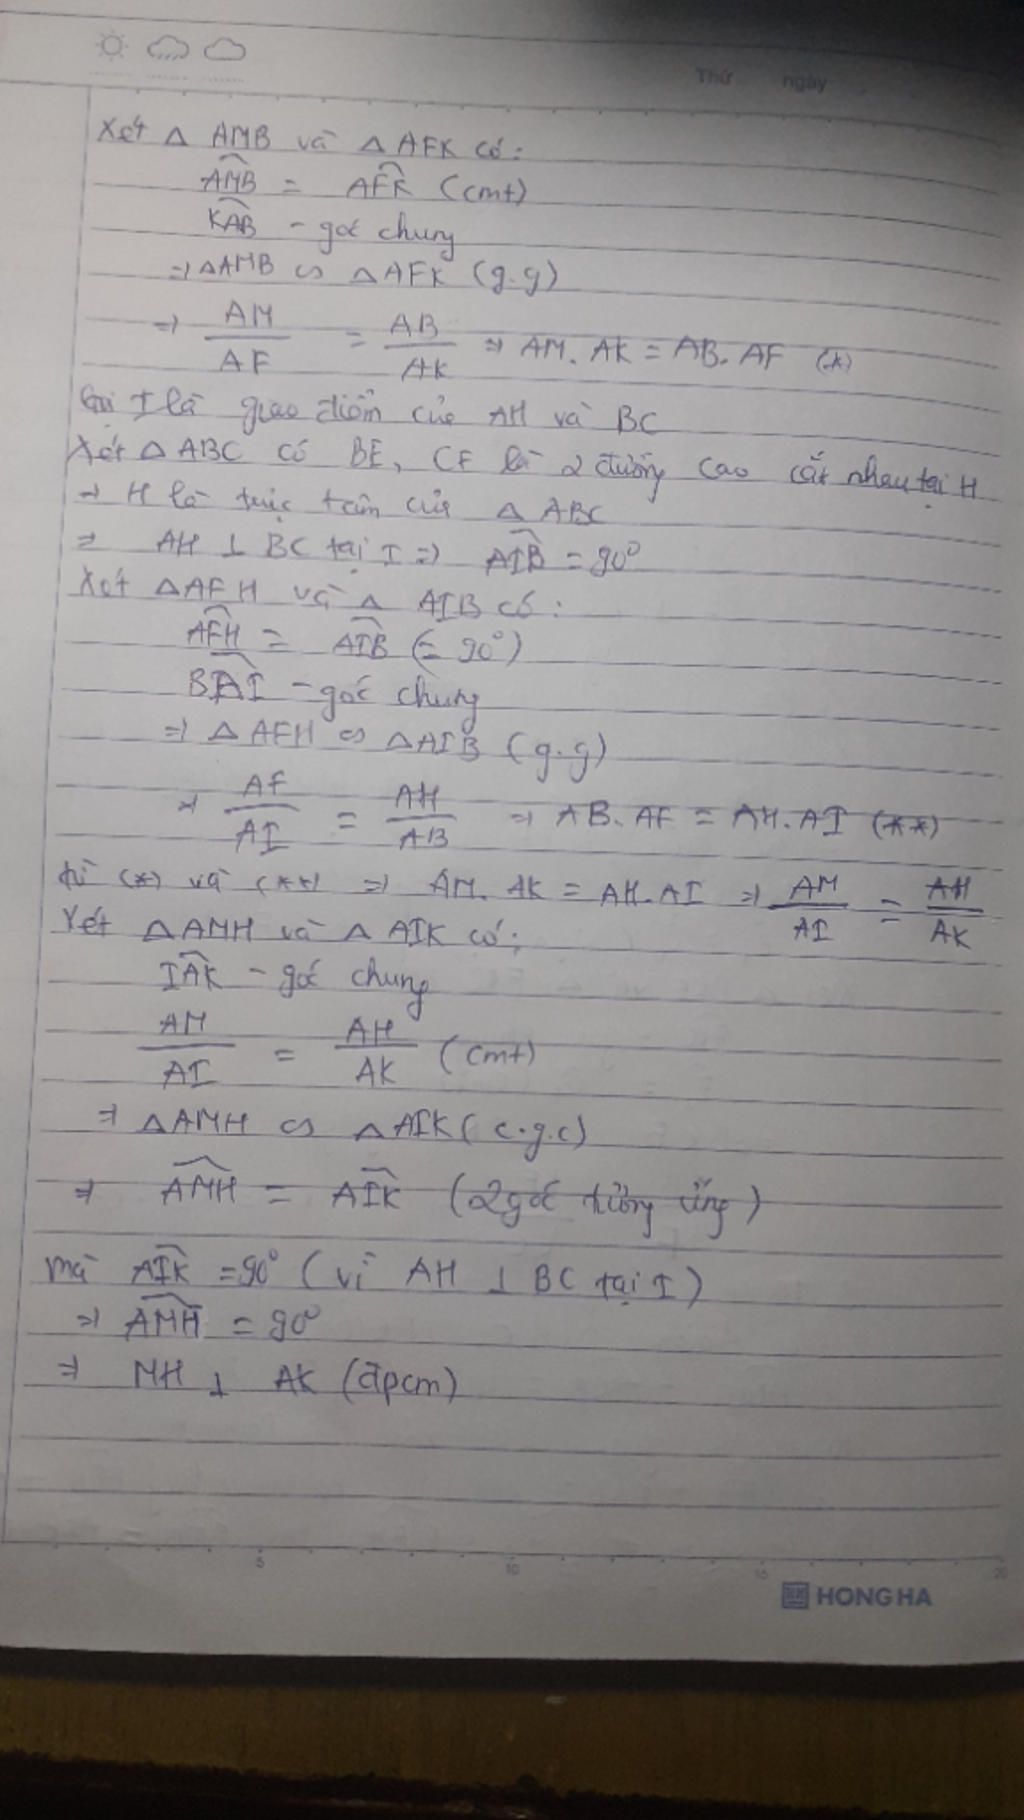 Thứ ngày
Xét △ AMB và △ AFK có:
AMB = AFK (cmt)
KAB - góc chung
⇒ △AMB ∽ △AFK (g.g)
⇒ AM/AF = AB/AK ⇒ AM. AK = AB. AF (*)
Gọi I là giao điểm của AH và BC
Xét △ ABC có BE, CF là 2 đường cao cắt nhau tại H
⇒ H là trực tâm của △ ABC
⇒ AH ⊥ BC tại I ⇒ AIB = 90°
Xét △AFH và △ AIB có:
AFH = AIB (= 90°)
BAI - góc chung
⇒ △AFH ∽ △AIB (g.g)
⇒ AF/AI = AH/AB ⇒ AB. AF = AH. AI (**)
từ (*) và (**) ⇒ AM. AK = AH. AI ⇒ AM/AI = AH/AK
Xét △AMH và △ AIK có:
IAK - góc chung
AM/AI = AH/AK (cmt)
⇒ △AMH ∽ △AIK (c.g.c)
⇒ AMH = AIK (2 góc tương ứng)
mà AIK = 90° (vì AH ⊥ BC tại I)
⇒ AMH = 90°
⇒ MH ⊥ AK (đpcm)
5 10 15 20
HONG HA